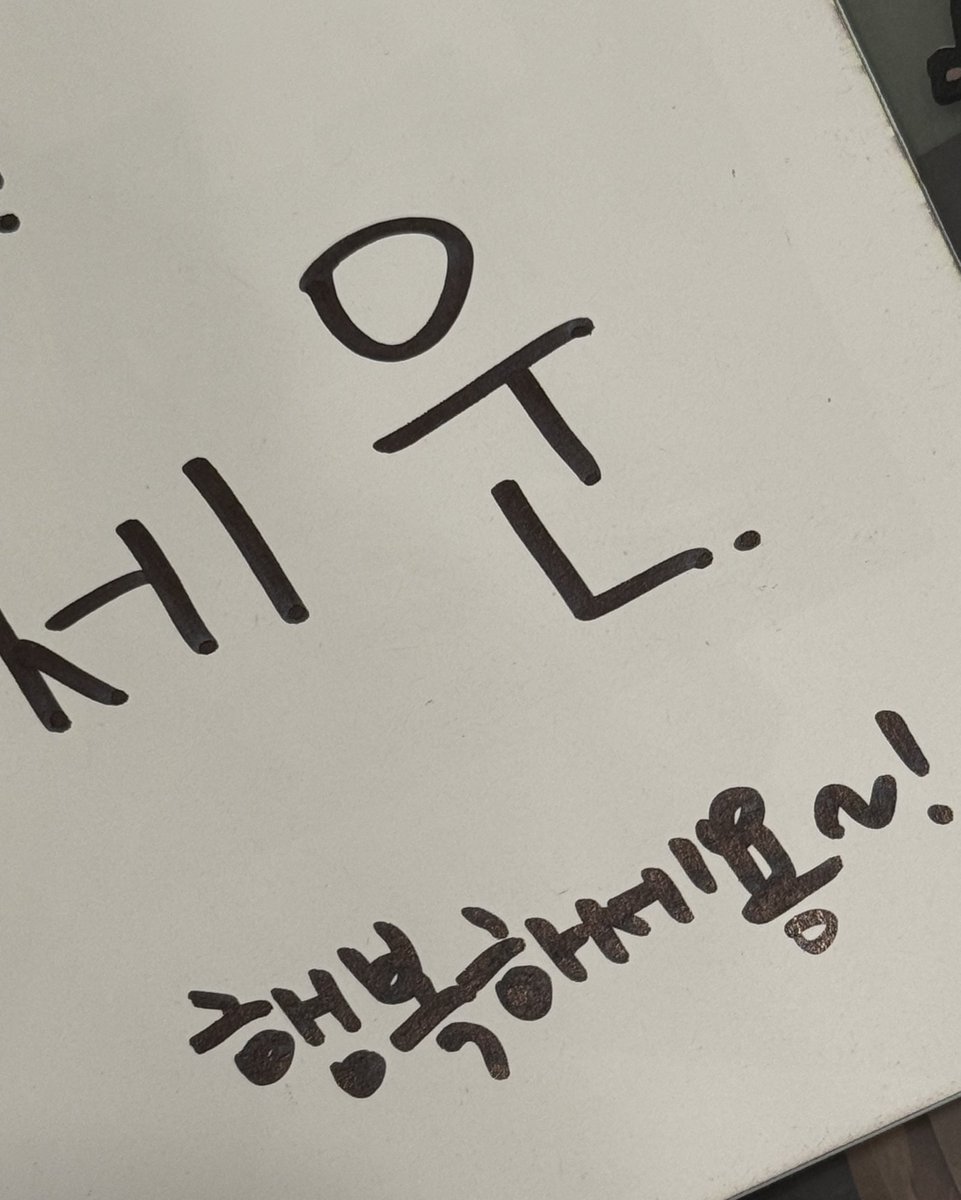 세운.
행복하세용~!